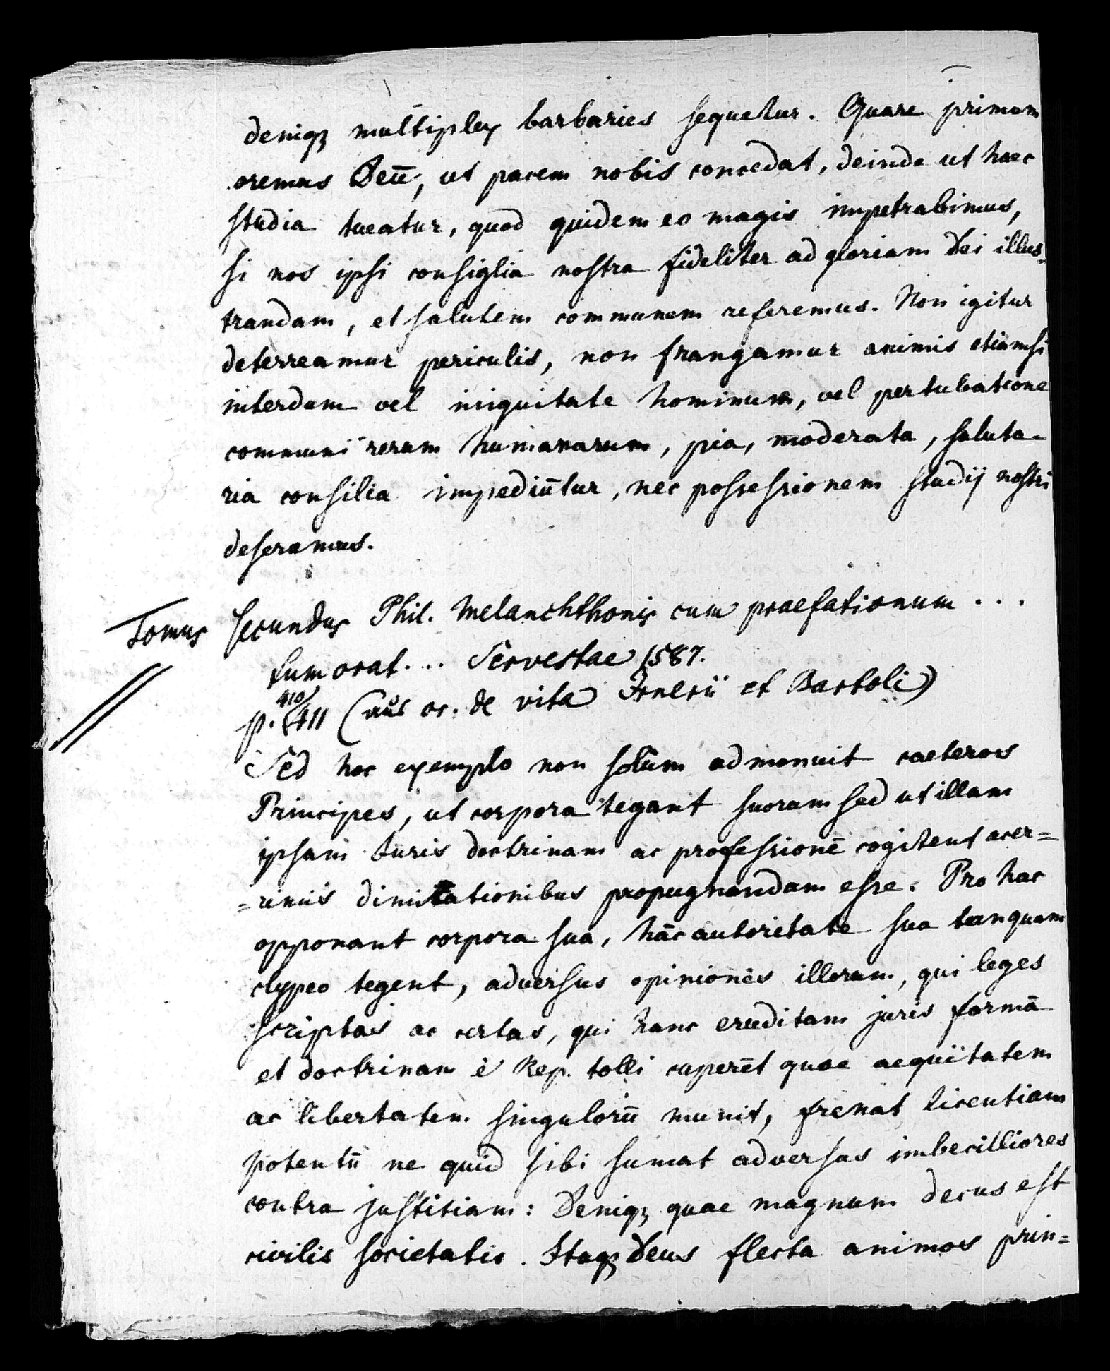 deniqꝫ multiplex barbaries sequetur. Quare primum
oremus Deū, ut pacem nobis concedat, deinde ut haec
studia tueatur, quod quidem eo magis impetrabimus,
si nos ipsi consiglia nostra fideliter ad gloriam Dei illus=
trandam, et salutem communem referemus. Non igitur
deterreamur periculis, non frangamur animis etiamsi
interdum vel iniquitate hominum, vel pertubatione
communi rerum humanarum, pia, moderata, saluta-
ria consilia impediūtur, nec possessionem studij nostri
deseramus.
Tomus secundus Phil. Melanchthonis cum praefationum ...
tum orat... Servestae 1587.
410
p. 411 (aus or. de vita Irnerii et Bartoli)
Sed hoc exemplo non solum admonuit caeteros
Principes, ut corpora tegant suorum sed ut illam
ipsam Iuris doctrinam ac professionē cogitent acer=
=rimis dimicationibus propugnandam esse: Pro hac
opponant corpora sua, hāc autoritate sua tanquam
clypeo tegent, adversus opiniones illorum, qui leges
scriptas ac certas, qui hanc eruditam juris formā
et doctrinam è Rep. tolli cuperēt quae aequitatem
ac libertatem singulorū munit, frenat licentiam
potentū ne quid sibi sumat adversus imbecilliores
contra justitiam: Deniqꝫ quae magnum decus est
civilis societatis. Itaqꝫ Deus flecta animos prin=